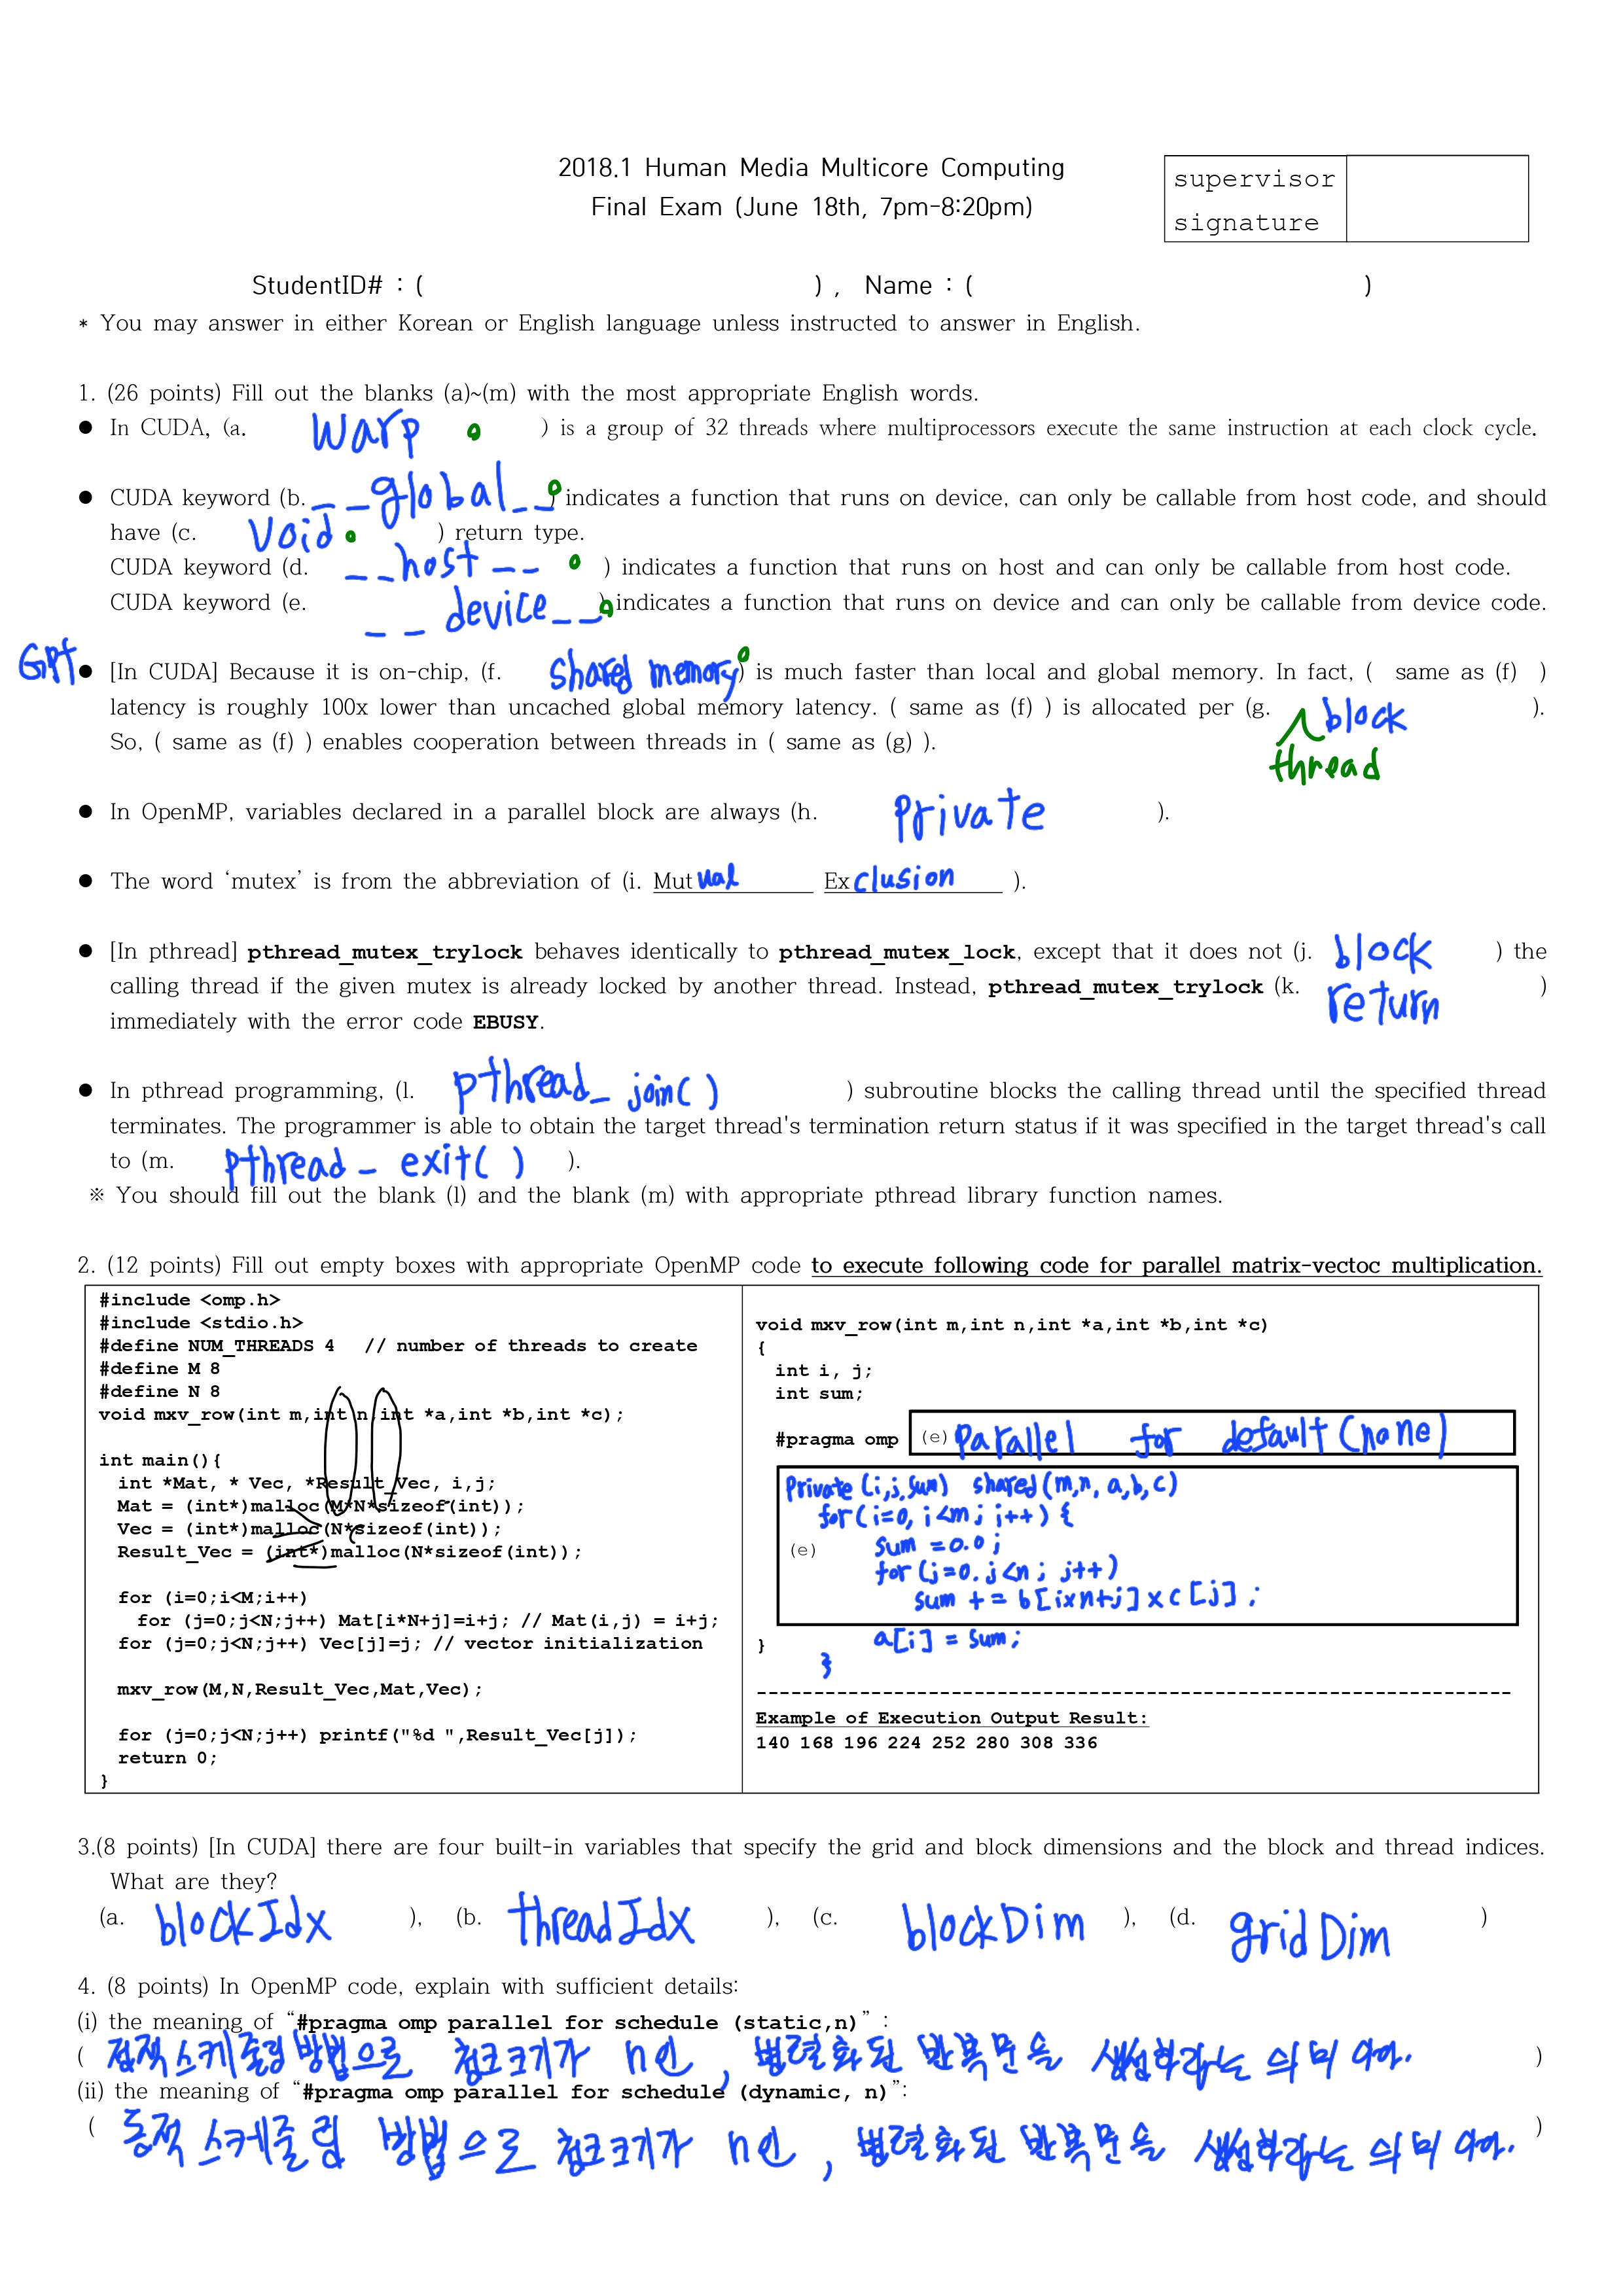 2018.1 Human Media Multicore Computing
Final Exam (June 18th, 7pm-8:20pm)
supervisor
signature
StudentID# : ( ) , Name : ( )
* You may answer in either Korean or English language unless instructed to answer in English.
1. (26 points) Fill out the blanks (a)~(m) with the most appropriate English words.
● In CUDA, (a. warp ) is a group of 32 threads where multiprocessors execute the same instruction at each clock cycle.
● CUDA keyword (b. __global__ ) indicates a function that runs on device, can only be callable from host code, and should
have (c. void ) return type.
CUDA keyword (d. __host__ ) indicates a function that runs on host and can only be callable from host code.
CUDA keyword (e. __device__ ) indicates a function that runs on device and can only be callable from device code.
GPT
● [In CUDA] Because it is on-chip, (f. shared memory ) is much faster than local and global memory. In fact, ( same as (f) )
latency is roughly 100x lower than uncached global memory latency. ( same as (f) ) is allocated per (g. thread block ).
So, ( same as (f) ) enables cooperation between threads in ( same as (g) ).
● In OpenMP, variables declared in a parallel block are always (h. private ).
● The word ‘mutex’ is from the abbreviation of (i. Mutual Exclusion ).
● [In pthread] pthread_mutex_trylock behaves identically to pthread_mutex_lock, except that it does not (j. block ) the
calling thread if the given mutex is already locked by another thread. Instead, pthread_mutex_trylock (k. return )
immediately with the error code EBUSY.
● In pthread programming, (l. pthread_join() ) subroutine blocks the calling thread until the specified thread
terminates. The programmer is able to obtain the target thread's termination return status if it was specified in the target thread's call
to (m. pthread_exit() ).
※ You should fill out the blank (l) and the blank (m) with appropriate pthread library function names.
2. (12 points) Fill out empty boxes with appropriate OpenMP code to execute following code for parallel matrix-vectoc multiplication.
#include <omp.h>
#include <stdio.h>
#define NUM_THREADS 4 // number of threads to create
#define M 8
#define N 8
void mxv_row(int m,int n,int *a,int *b,int *c);
int main(){
int *Mat, * Vec, *Result_Vec, i,j;
Mat = (int*)malloc(M*N*sizeof(int));
Vec = (int*)malloc(N*sizeof(int));
Result_Vec = (int*)malloc(N*sizeof(int));
for (i=0;i<M;i++)
for (j=0;j<N;j++) Mat[i*N+j]=i+j; // Mat(i,j) = i+j;
for (j=0;j<N;j++) Vec[j]=j; // vector initialization
mxv_row(M,N,Result_Vec,Mat,Vec);
for (j=0;j<N;j++) printf("%d ",Result_Vec[j]);
return 0;
}
void mxv_row(int m,int n,int *a,int *b,int *c)
{
int i, j;
int sum;
#pragma omp (e) parallel for default(none)
private (i,j,sum) shared(m,n,a,b,c)
for(i=0, i<m; i++) {
(e) sum =0.0;
for(j=0. j<n; j++)
sum += b[i×n+j]×c[j];
a[i] = sum;
}
}
Example of Execution Output Result:
140 168 196 224 252 280 308 336
3.(8 points) [In CUDA] there are four built-in variables that specify the grid and block dimensions and the block and thread indices.
What are they?
(a. blockIdx ), (b. threadIdx ), (c. blockDim ), (d. gridDim )
4. (8 points) In OpenMP code, explain with sufficient details:
(i) the meaning of “#pragma omp parallel for schedule (static,n)” :
( 정적스케줄링 방법으로 청크크기가 n인, 병렬화된 반복문을 생성하라는 의미이다. )
(ii) the meaning of “#pragma omp parallel for schedule (dynamic, n)”:
( 동적 스케줄링 방법으로 청크크기가 n인, 병렬화된 반복문을 생성하라는 의미이다. )